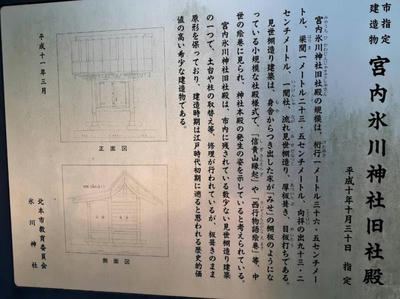 市指定
建造物
宮内氷川神社旧社殿
平成十年十月三十日 指定
宮内氷川神社旧社殿の規模は、桁行一メートル三十六・五センチメー
トル、梁間一メートル二十三・五センチメートル、向拝の出九十三・二
センチメートル、一間社、流れ見世棚造り、厚板葺き、目板打ちである。
見世棚造り建築は、身舎からつき出した床が「みせ」の棚板のようにな
っている小規模な社殿様式で、「信貴山縁起」や「西行物語絵巻」等、中
世の絵巻に見られ、神社本殿の発生の姿を示していると考えられている。
宮内氷川神社旧社殿は、市内に残されている数少ない見世棚造り建築
の一つで、土台や柱の取替え等、修理が行われているが、板葺きのまま
原形を保っており、建造時期は江戸時代初期に遡ると思われる歴史的価
値の高い希少な建造物である。
平成十一年三月
正面図
側面図
北本市教育委員会
氷川神社